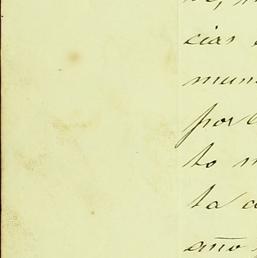 cias
mun
por
to m
ta a
año